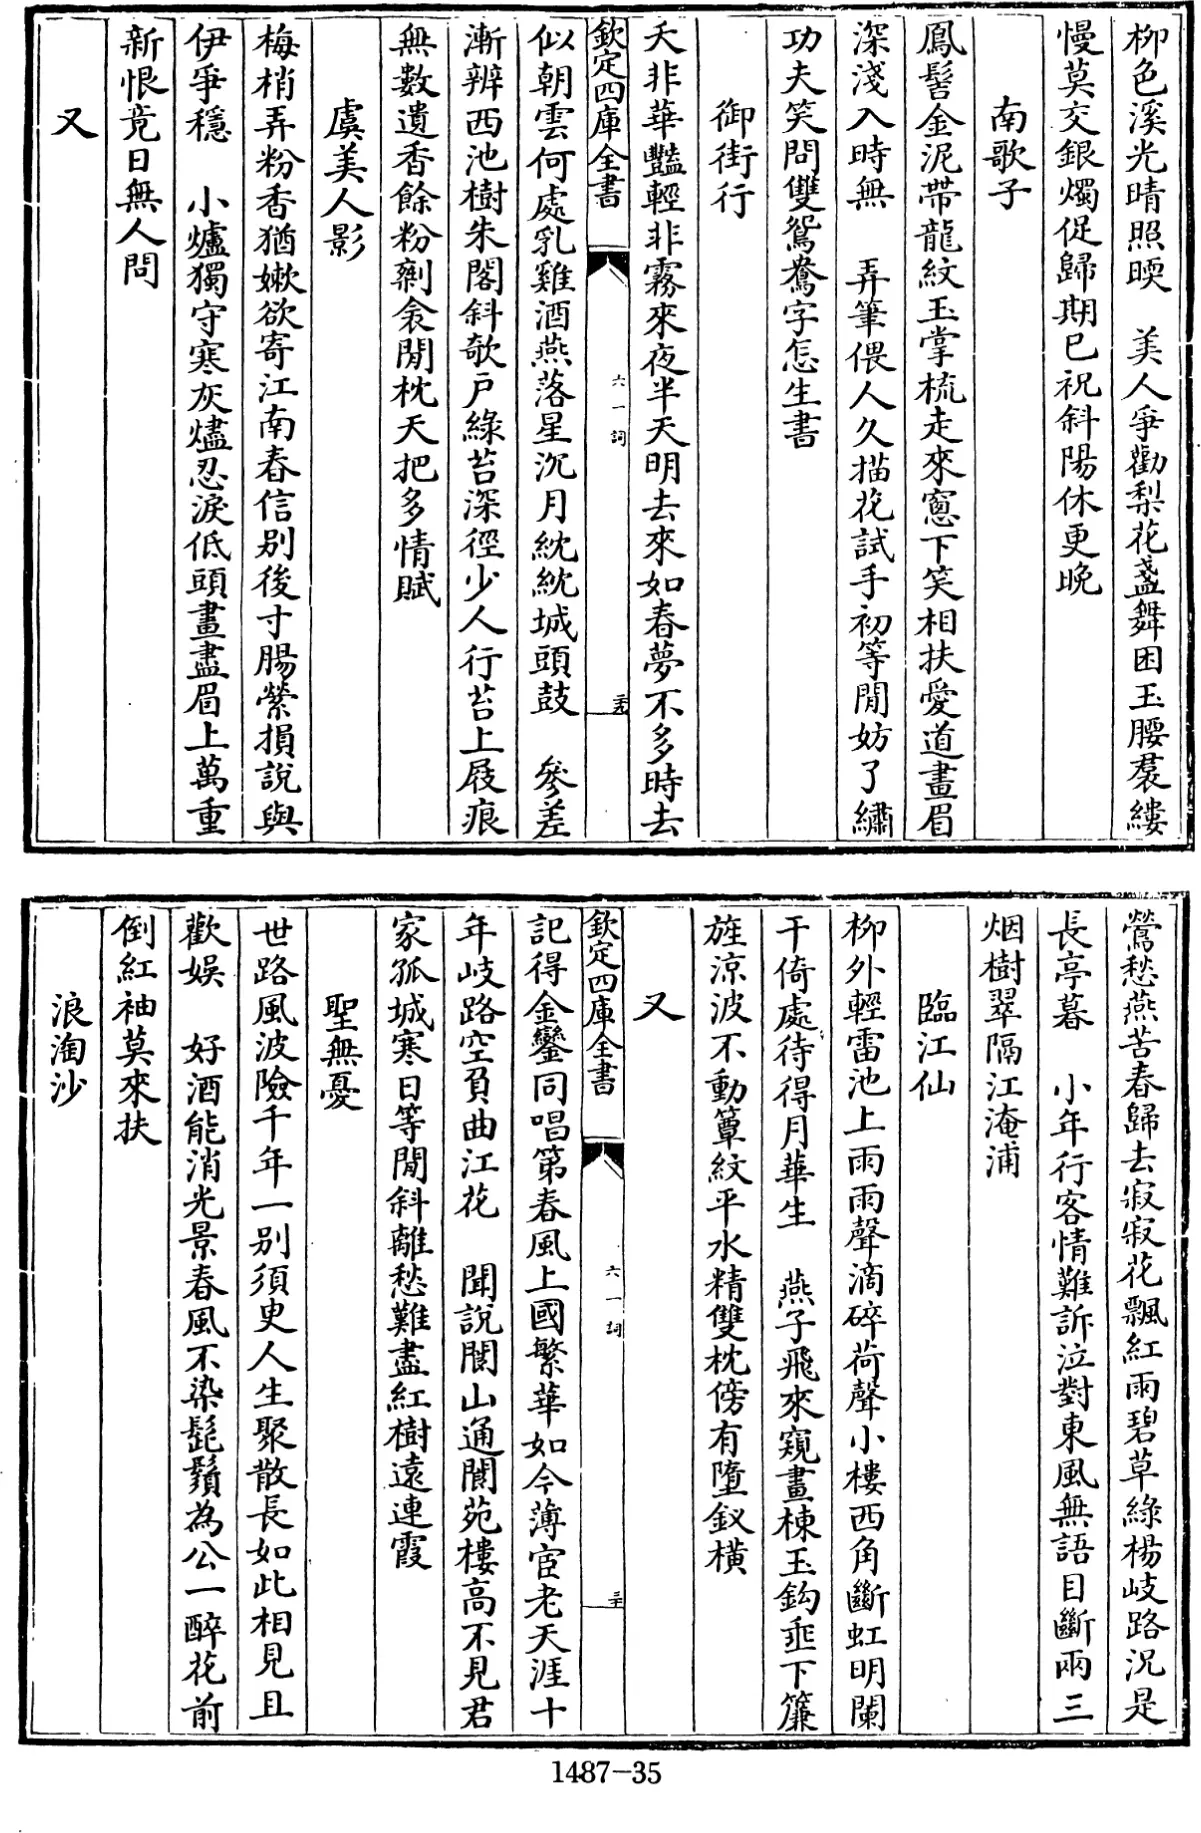 柳色溪光晴照暎　美人爭勸梨花盞舞困玉腰裠縷
慢莫交銀燭促歸期已祝斜陽休更晚
南歌子
鳳髻金泥帶龍紋玉掌梳走來窻下笑相扶愛道畫眉
深淺入時無　弄筆偎人久描花試手初等閒妨了繡
功夫笑問雙鴛鴦字怎生書
御街行
夭非華豔輕非霧來夜半天明去來如春夢不多時去
欽定四庫全書
六一詞
似朝雲何處乳雞酒燕落星沉月紞紞城頭鼓　參差
漸辨西池樹朱閣斜欹戶綠苔深徑少人行苔上屐痕
無數遺香餘粉剩衾閒枕天把多情賦
虞美人影
梅梢弄粉香猶嫰欲寄江南春信别後寸腸縈損說與
伊爭穩　小爐獨守寒灰燼忍淚低頭畫盡眉上萬重
新恨竟日無人問
又
鶯愁燕苦春歸去寂寂花飄紅雨碧草綠楊岐路況是
長亭暮　小年行客情難訴泣對東風無語目斷兩三
烟樹翠隔江淹浦
臨江仙
柳外輕雷池上雨雨聲滴碎荷聲小樓西角斷虹明闌
干倚處待得月華生　燕子飛來窺畫棟玉鈎垂下簾
旌涼波不動簟紋平水精雙枕傍有墮釵橫
又
欽定四庫全書
六一詞
記得金鑾同唱第春風上國繁華如今薄宦老天涯十
年岐路空負曲江花　聞說閬山通閬苑樓高不見君
家孤城寒日等閒斜離愁難盡紅樹遠連霞
聖無憂
世路風波險千年一别須臾人生聚散長如此相見且
歡娯　好酒能消光景春風不染髭鬚為公一醉花前
倒紅袖莫來扶
浪淘沙
1487-35